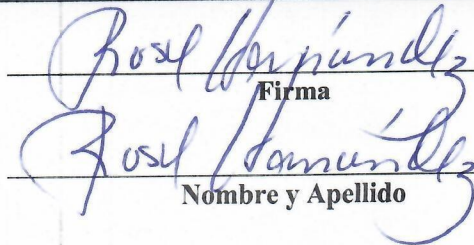 José Hernández
Firma
José Hernández
Nombre y Apellido